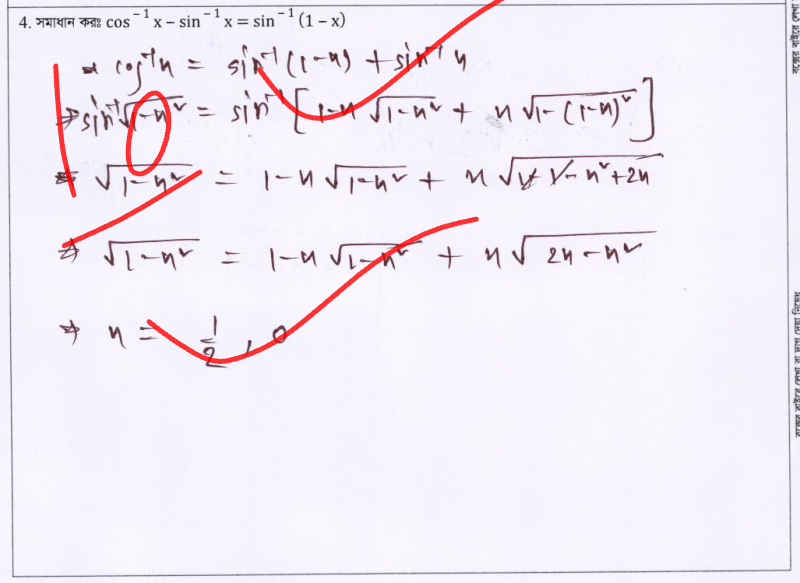 4. সমাধান করঃ cos⁻¹ x – sin⁻¹ x = sin⁻¹ (1 – x)
⇒ cos⁻¹x = sin⁻¹(1-x) + sin⁻¹ x
⇒ sin⁻¹√(1-x²) = sin⁻¹ [ 1-x √(1-x²) + x √(1-(1-x)²) ]
⇒ √(1-x²) = 1-x √(1-x²) + x √(1-1-x²+2x)
⇒ √(1-x²) = 1-x √(1-x²) + x √(2x-x²)
⇒ x = 1/2, 0